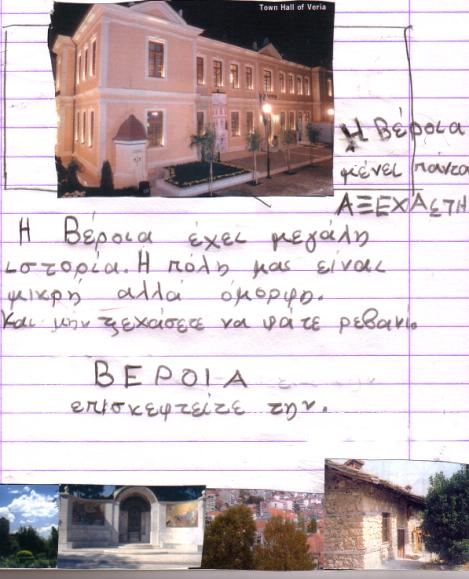 Town Hall of Veria
Η Βέροια
μένει πάντα
ΑΞΕΧΑΣΤΗ
Η Βέροια έχει μεγάλη
ιστορία. Η πόλη μας είναι
μικρή αλλά όμορφη.
Και μην ξεχάσετε να φάτε ρεβανί.
ΒΕΡΟΙΑ
επισκεφτείτε την.